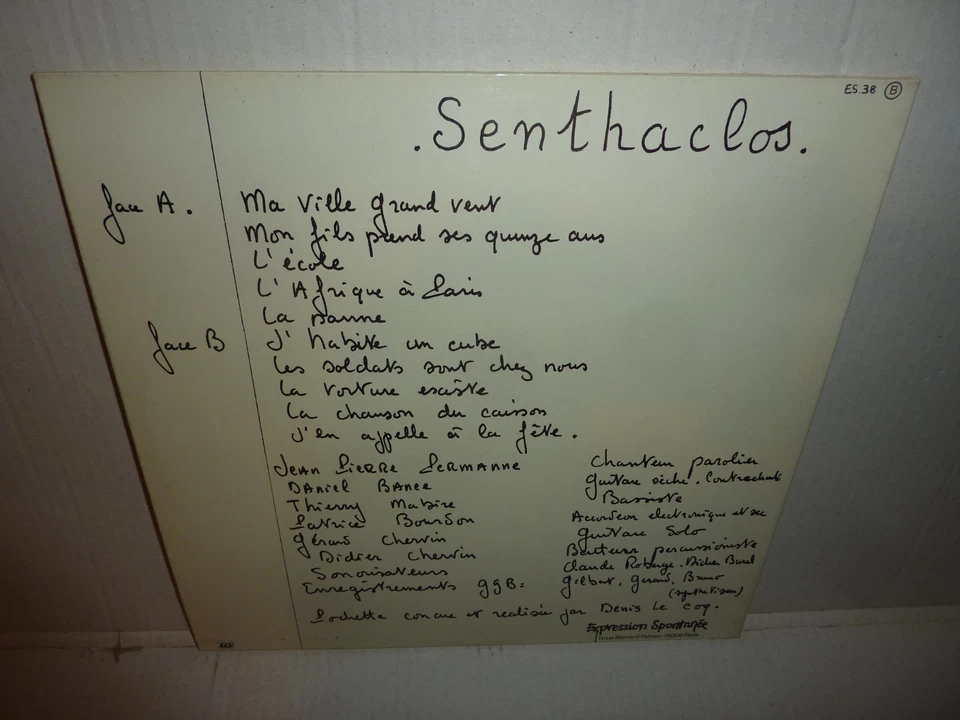 ES.38 B
.Senthaclos.
face A. Ma ville grand vent
Mon fils prend ses quinze ans
L'école
L'Afrique à Paris
La panne
face B J'habite un cube
Les soldats sont chez nous
La voiture existe
La chanson du caisson
J'en appelle à la fête.
Jean Pierre Lermanne Chanteur parolier
Daniel guitare sèche.
Thierry Mabire Bassiste
Patrice Bourdon Accordéon electronique et sec
Gérard Chervin guitare Solo
Didier Chervin Batteur percussionniste
Sonorisateurs Claude Roberge. Didier Burel
Enregistrements GGB: Gilbert, Gerard, Bruno
Pochette concue et realisée par Denis Le Coq.
Expression Spontanée